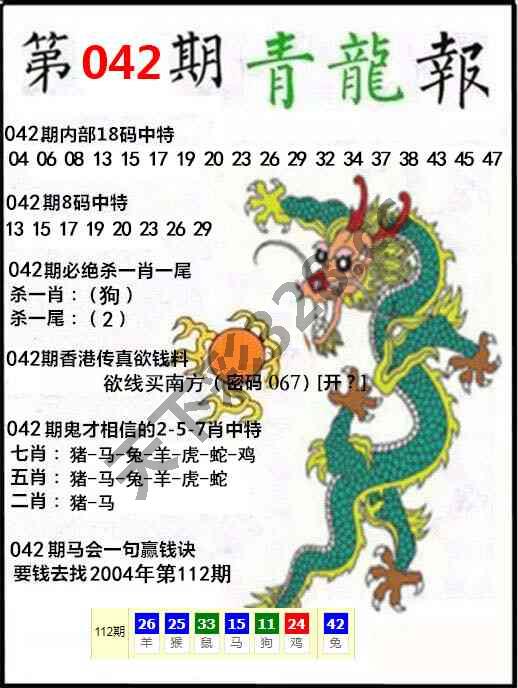 第042期青龍報
042期内部18码中特
04 06 08 13 15 17 19 20 23 26 29 32 34 37 38 43 45 47
042期8码中特
13 15 17 19 20 23 26 29
042期必绝杀一肖一尾
杀一肖：（狗）
杀一尾：（2）
042期香港传真欲钱料
欲线买南方（密码 067）[开？]
042期鬼才相信的2-5-7肖中特
七肖：猪-马-兔-羊-虎-蛇-鸡
五肖：猪-马-兔-羊-虎-蛇
二肖：猪-马
042期马会一句赢钱诀
要钱去找2004年第112期
112期 26 25 33 15 11 24 42
羊 猴 鼠 马 狗 鸡 兔